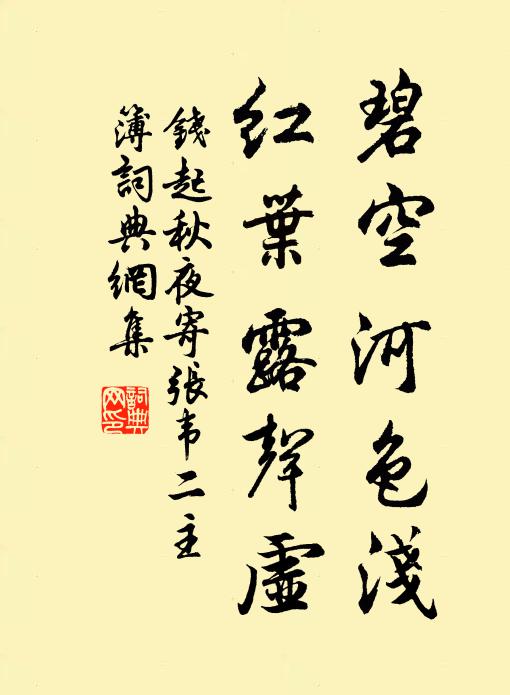 碧空河色淺
紅葉露聲虛
錢起秋夜寄張韦二主
簿詞典網集
詞典
网印